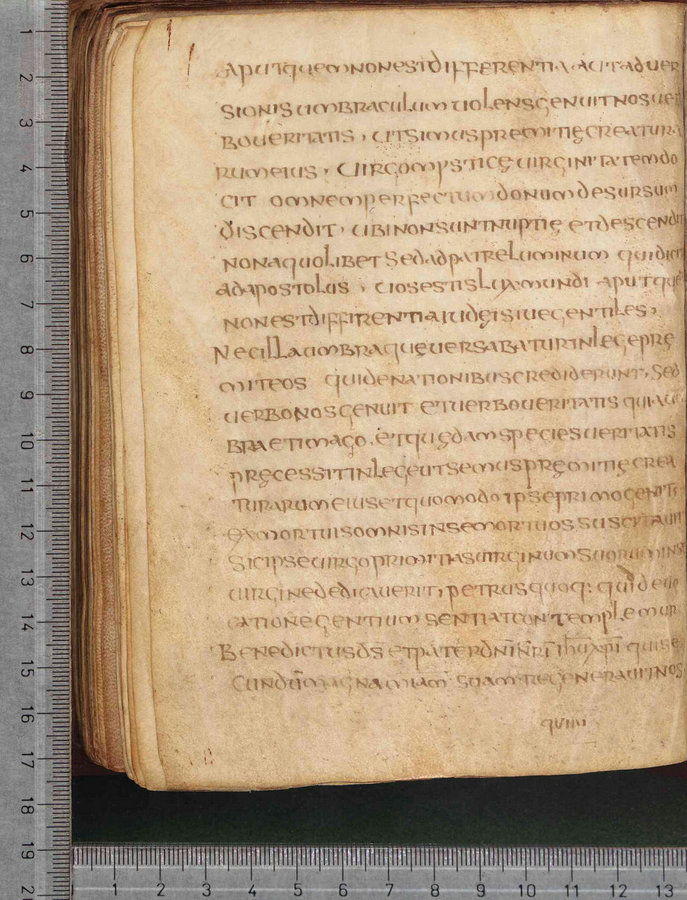 aputquem non est differentia aut aduer
sionis umbraculum uolens genuit nos uer
bo ueritatis, ut simus premitię creatura
rum eius, uirgo mystice uirginitatem do
cit omnem perfectum donum desursum
discendit, ubi non sunt nuptię et descendit
non aquolibet sed ad patre luminum qui dicit
ad apostolus, uos estis lux mundi aput que
non est diffirentia iudęi siue gentiles,
Nec illa umbra quę uersabatur in lege prę
miteos qui de nationibus crediderunt, Sed
uerbo nos genuit et uerbo ueritatis qui a
bra et imago, et quędam species ueritatis
pręcessit in lege ut semus pręmitię crea
turarum eius et quomodo ipse primogenit
ex mortuis omnis in se mortuos suscitauit
Sic ipse uirgo primitias uirginum suorum in
uirgine dedicauerit, petrus quoq: quid euo
catione gentium sentiat contemplemur
Benedictus ds et pater dni nri ihu xpi qui se
cundum magnam miam suam regenerauit nos
quiiii
1
2
3
4
5
6
7
8
9
10
11
12
13
14
15
16
17
18
19
2
1 2 3 4 5 6 7 8 9 10 11 12 13